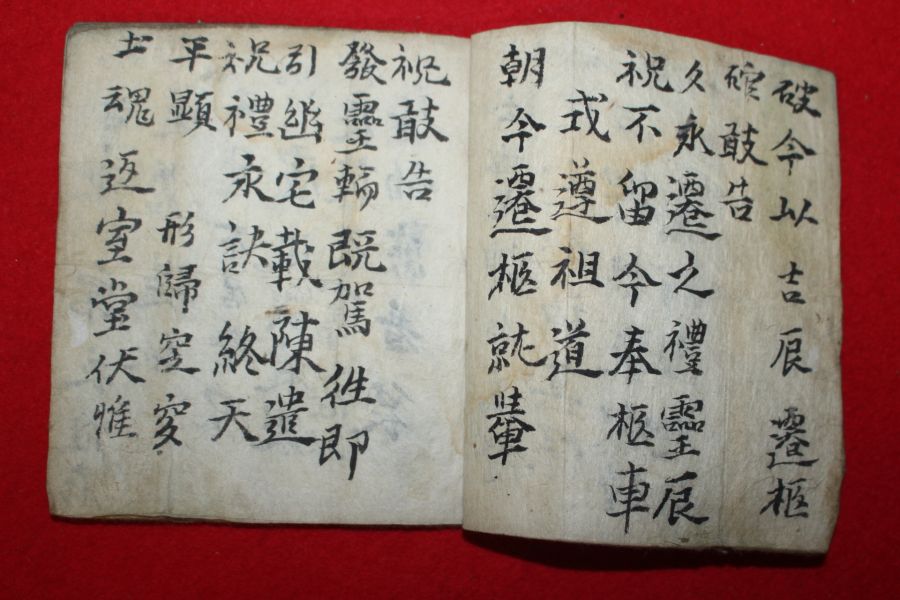 破今以吉辰遷柩
敢告
久永遷之禮靈辰
祝不留今奉柩車
式遵祖道
朝今遷柩就轝
祝敢告
發靈輪既駕往即
引幽宅載陳遣
祝禮永訣終天
平顯 形歸窆
土魂返室堂伏惟